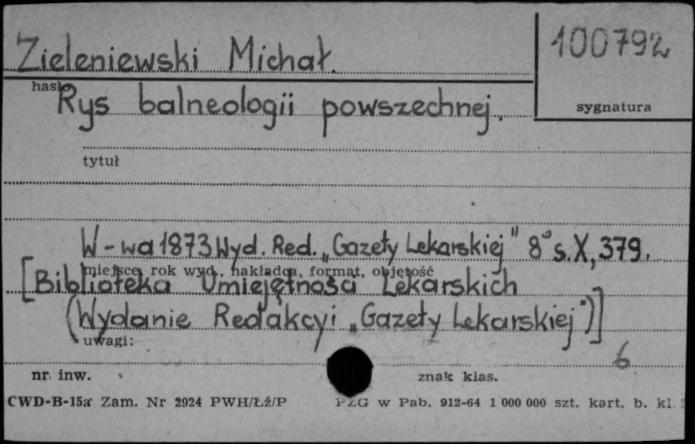 Zieleniewski Michał. 100792
hasło
Rys balneologii powszechnej. sygnatura
tytuł
W-wa 1873 Wyd. Red. „Gazety Lekarskiej" 8° s. X, 379.
miejsce, rok wyd., nakładca, format, objętość
[Biblioteka Umiejętności Lekarskich
(Wydanie Redakcyi „Gazety Lekarskiej")]
uwagi: 6
nr. inw. znak klas.
CWD-B-15a Zam. Nr 2924 PWH/Łź/P PZG w Pab. 912-64 1 000 000 szt. kart. b. kl.